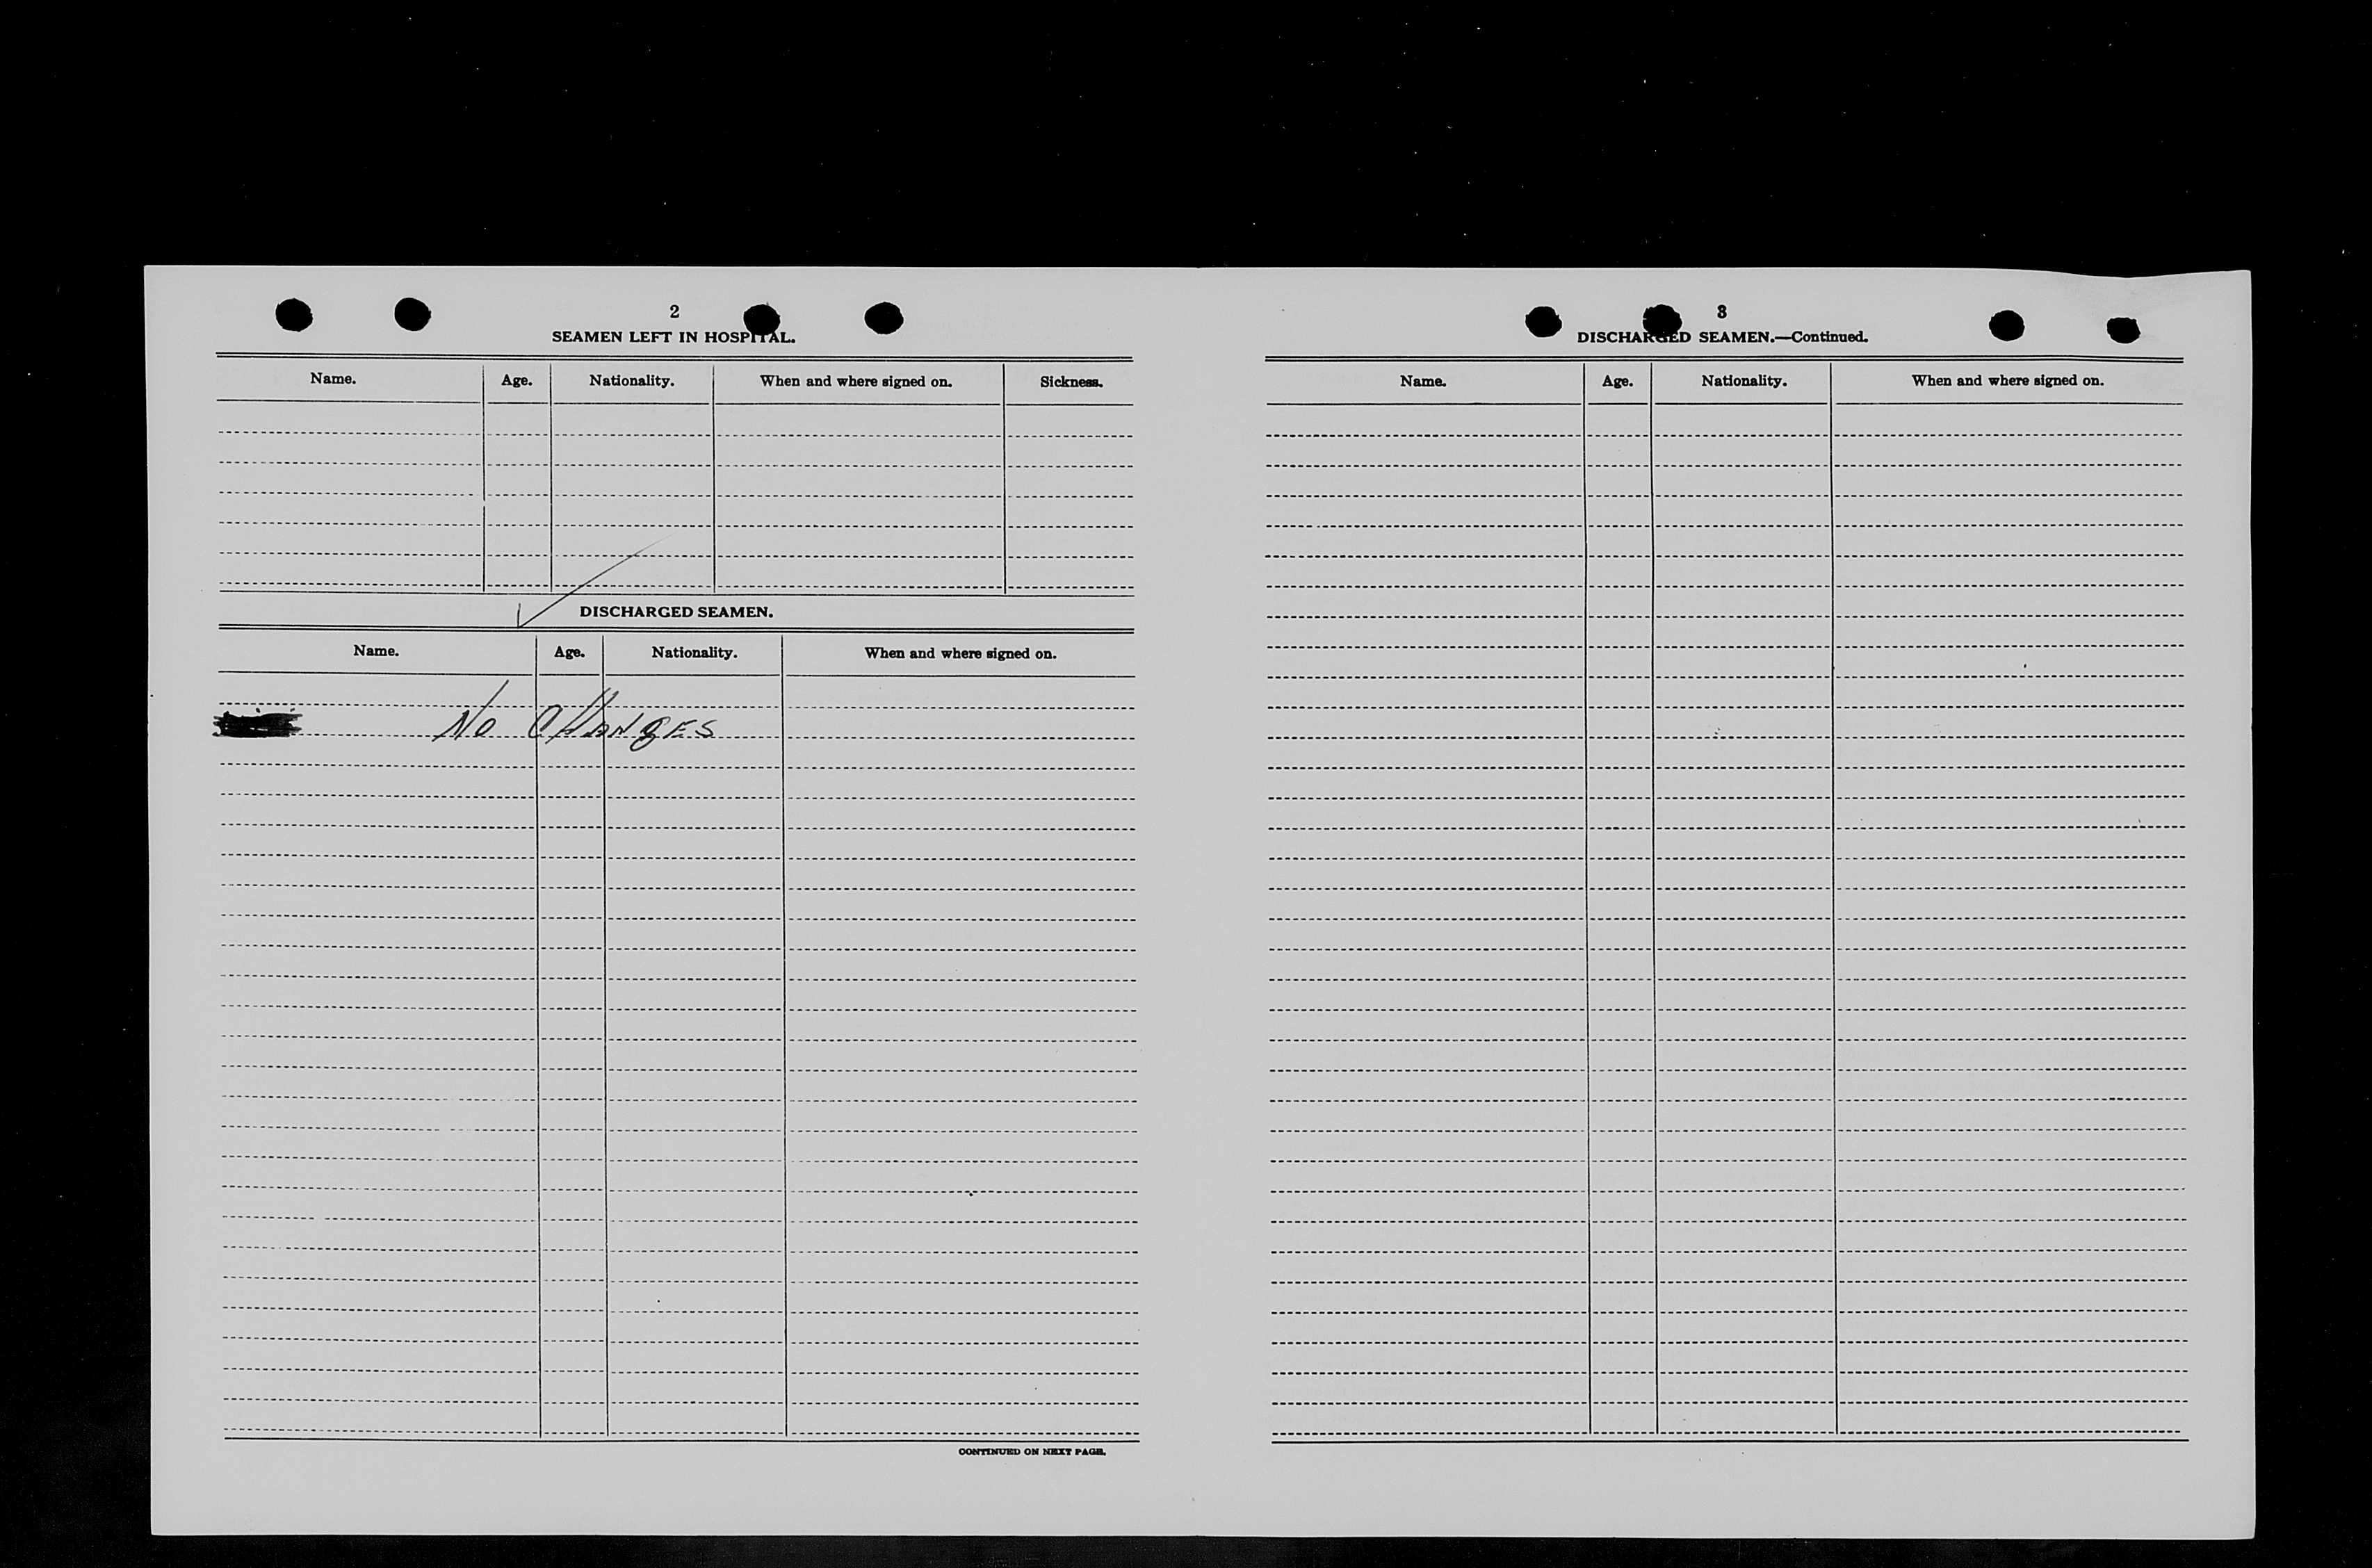 2
SEAMEN LEFT IN HOSPITAL.
Name. Age. Nationality. When and where signed on. Sickness.
DISCHARGED SEAMEN.
Name. Age. Nationality. When and where signed on.
NO CHANGES
CONTINUED ON NEXT PAGE.
3
DISCHARGED SEAMEN.—Continued.
Name. Age. Nationality. When and where signed on.